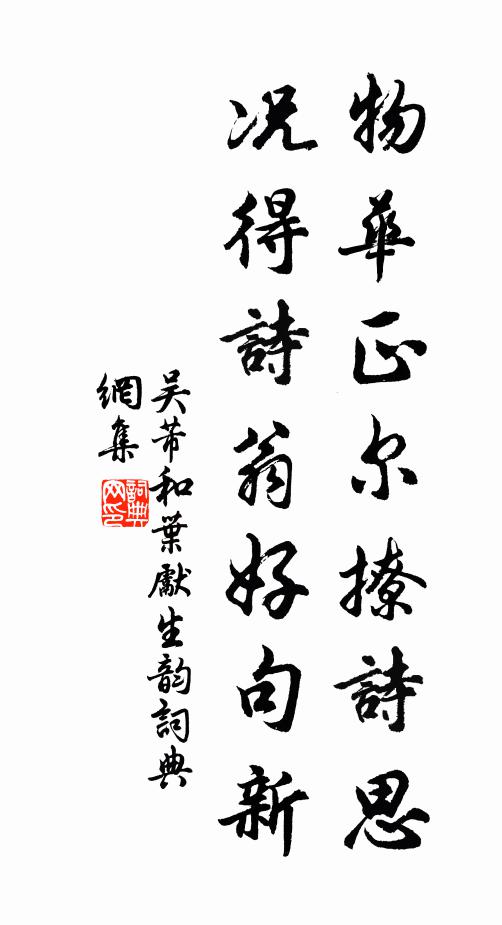 物華正尔撩詩思
况得詩翁好句新
吴芾和葉獻生韵詞典
網集
詞典
网印